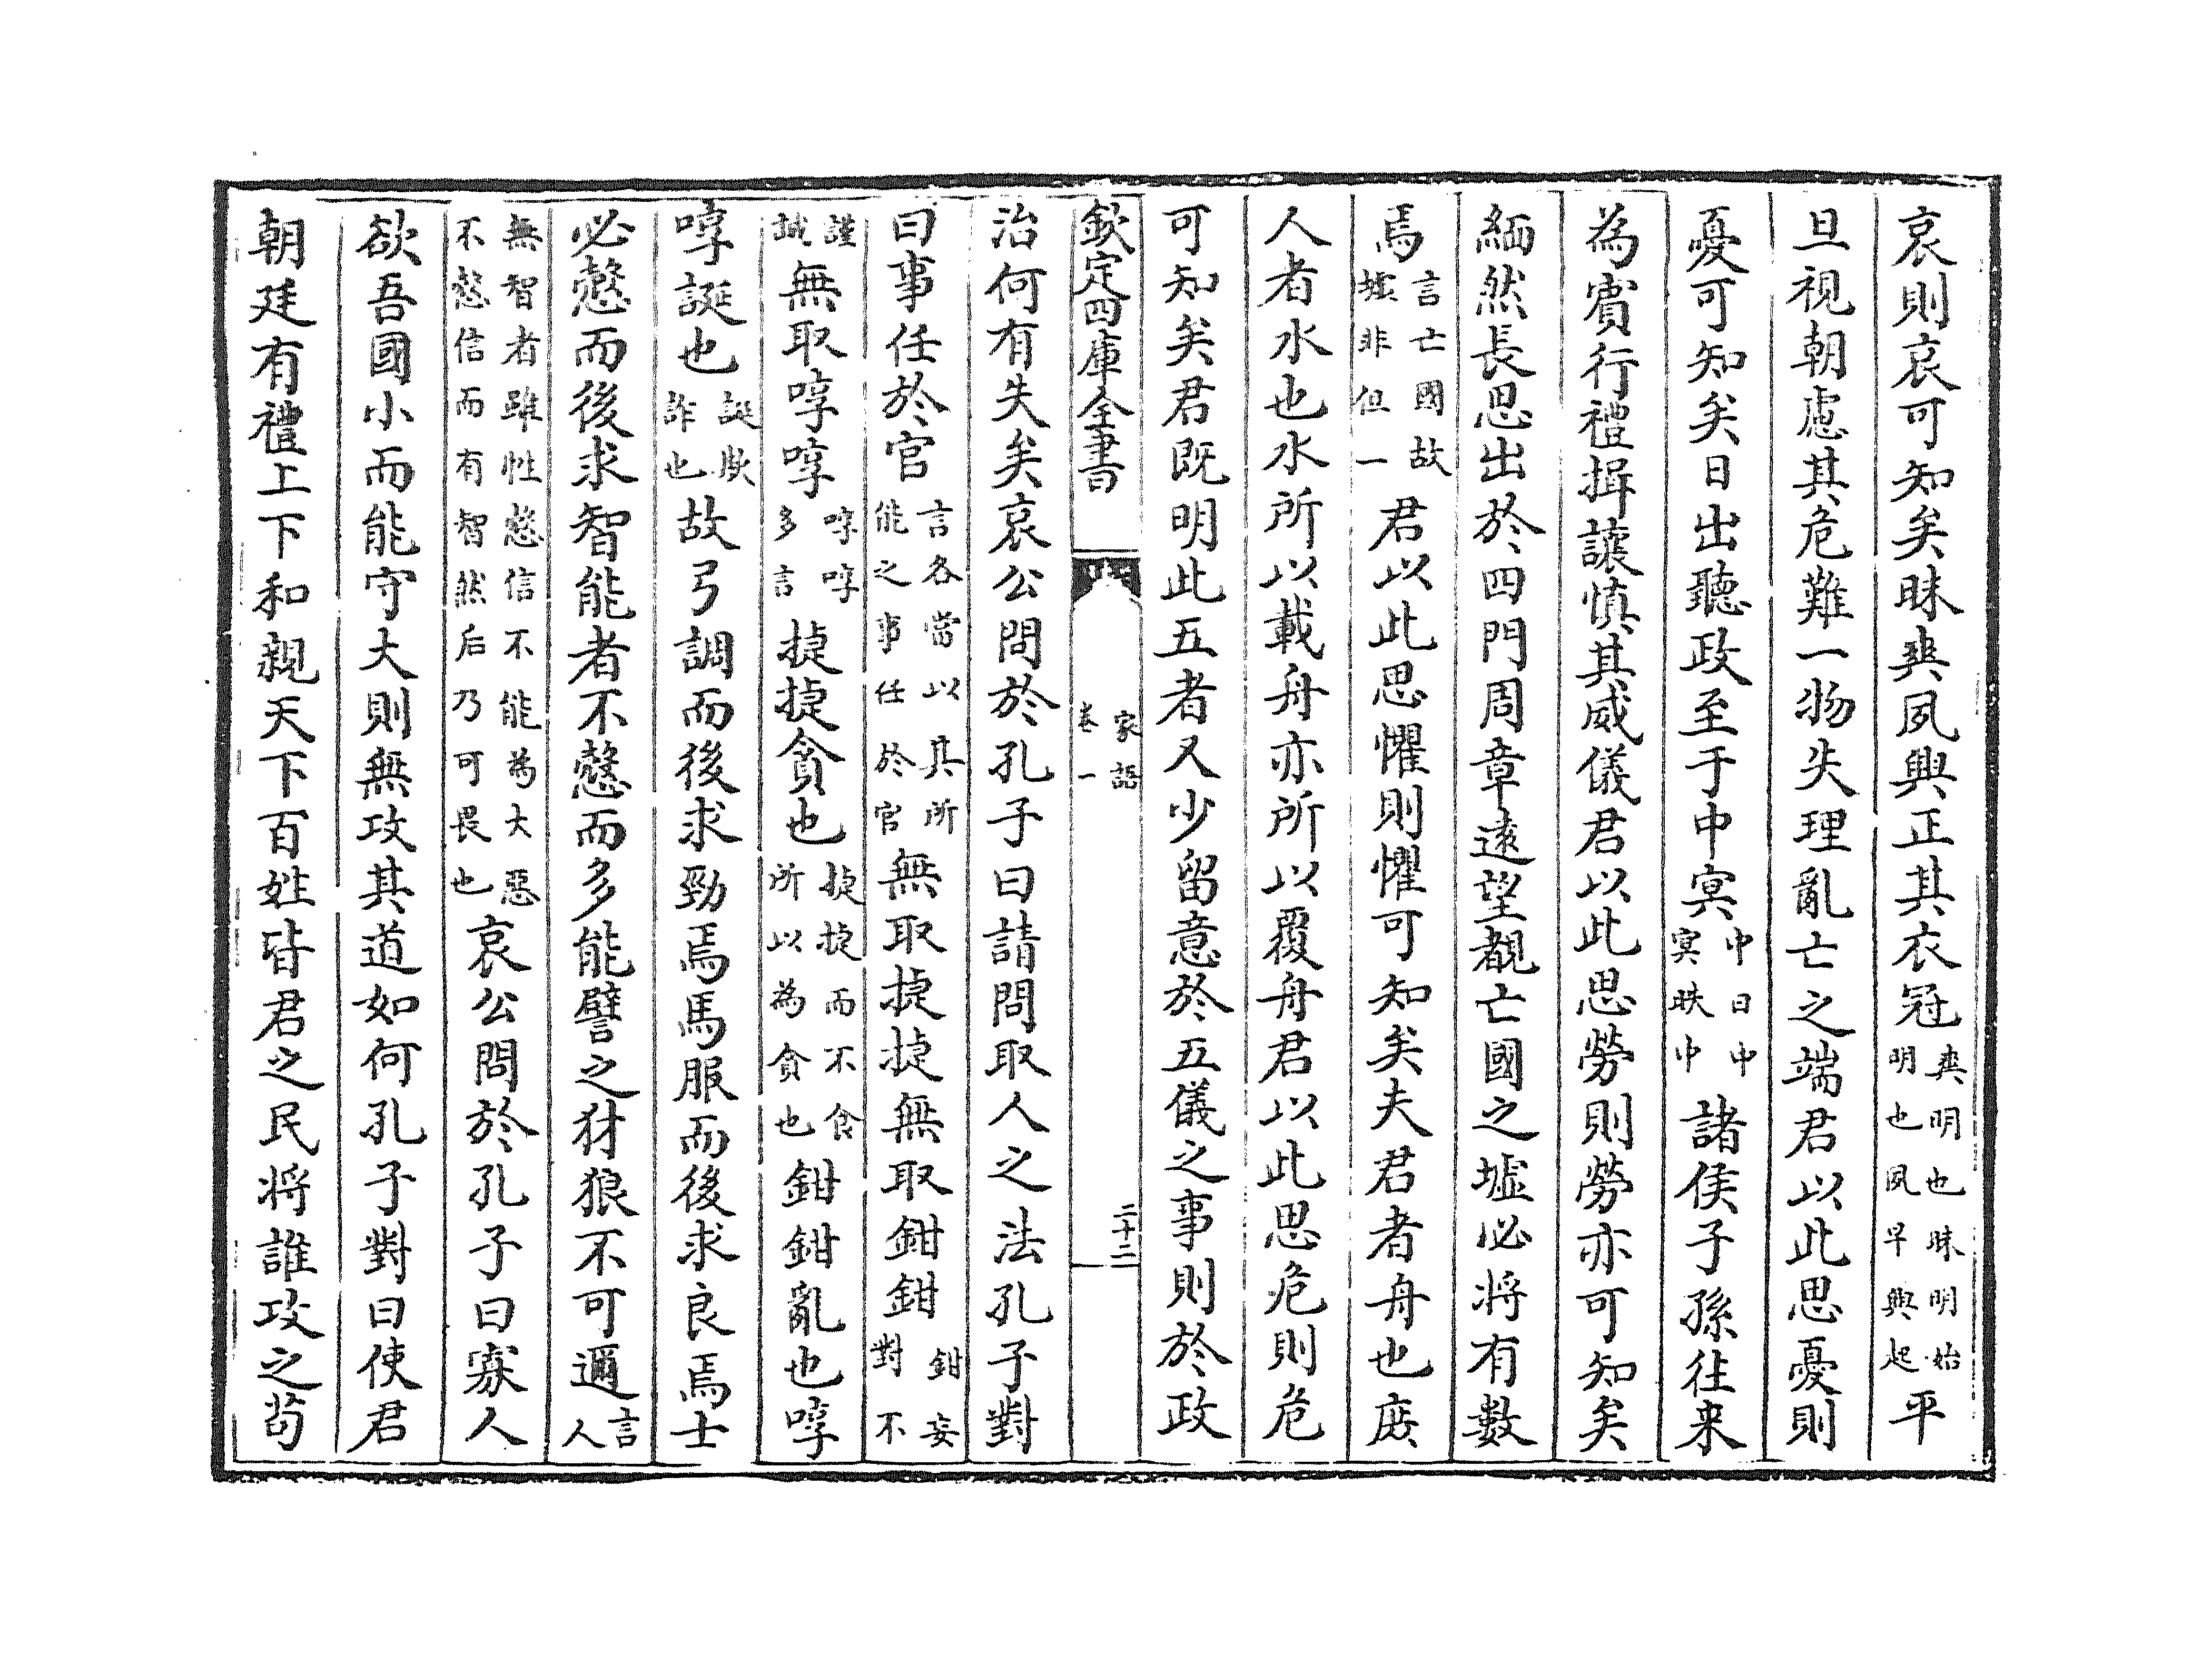 哀則哀可知矣昧爽夙興正其衣冠爽明也昧明始明也夙早興起平
旦視朝慮其危難一物失理亂亡之端君以此思憂則
憂可知矣日出聽政至于中㝠中日中㝠昳中諸侯子孫往来
為賓行禮揖讓慎其威儀君以此思勞則勞亦可知矣
緬然長思出於四門周章遠望覩亡國之墟必將有數
焉言亡國故墟非但一君以此思懼則懼可知矣夫君者舟也庶
人者水也水所以載舟亦所以覆舟君以此思危則危
可知矣君既明此五者又少留意於五儀之事則於政
欽定四庫全書
家語
卷一
二十二
治何有失矣哀公問於孔子曰請問取人之法孔子對
曰事任於官言各當以其所能之事任於官無取捷捷無取鉗鉗鉗妄對不
謹誠無取啍啍啍啍多言捷捷貪也捷捷而不食所以為貪也鉗鉗亂也啍
啍誕也誕欺詐也故弓調而後求勁焉馬服而後求良焉士
必慤而後求智能者不慤而多能譬之豺狼不可邇言人
無智者雖性慤信不能為大惡不慤信而有智然后乃可畏也哀公問於孔子曰寡人
欲吾國小而能守大則無攻其道如何孔子對曰使君
朝廷有禮上下和親天下百姓皆君之民将誰攻之苟